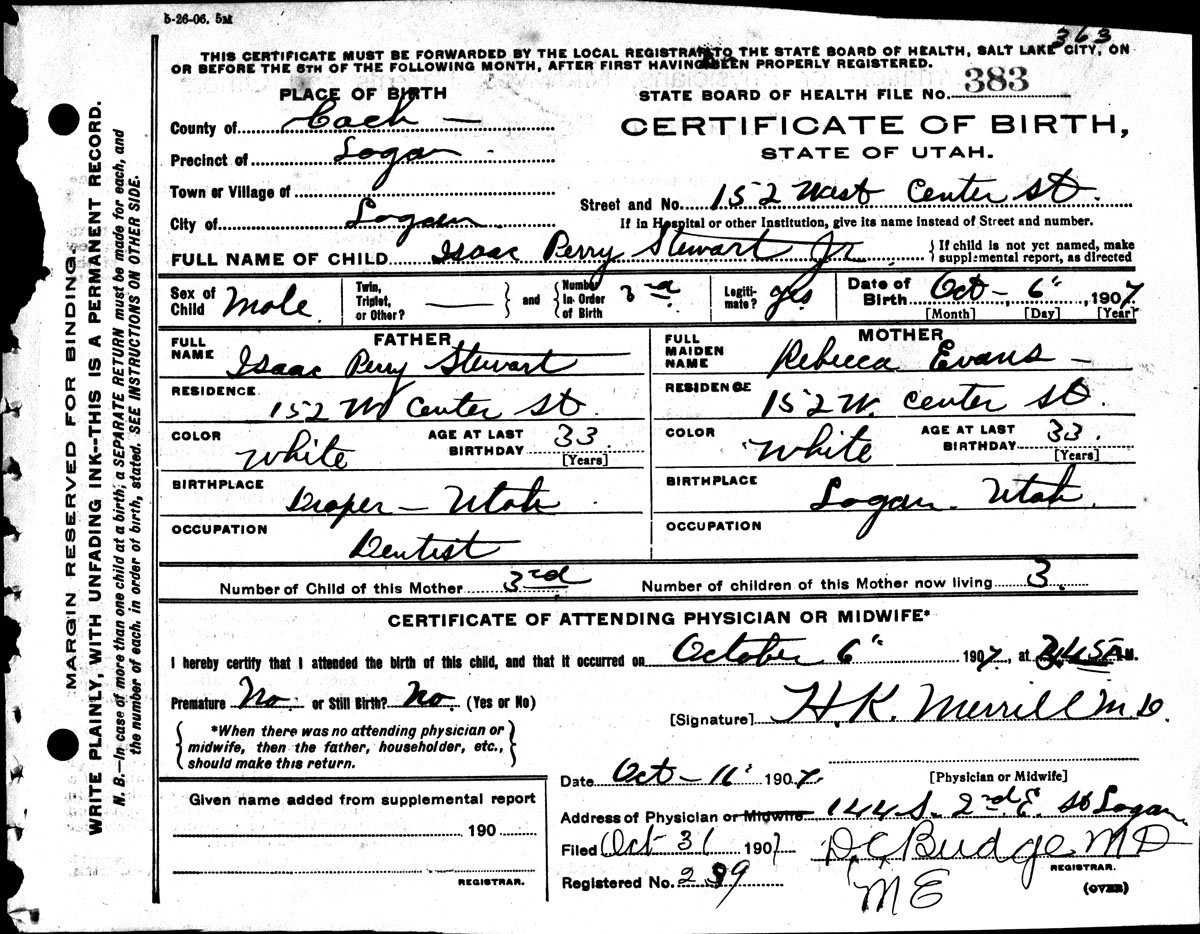 5-26-06. 5M
363
THIS CERTIFICATE MUST BE FORWARDED BY THE LOCAL REGISTRAR TO THE STATE BOARD OF HEALTH, SALT LAKE CITY, ON
OR BEFORE THE 5TH OF THE FOLLOWING MONTH, AFTER FIRST HAVING BEEN PROPERLY REGISTERED.
PLACE OF BIRTH
STATE BOARD OF HEALTH FILE No. 383
County of Cach
CERTIFICATE OF BIRTH,
STATE OF UTAH.
Precinct of Logan
Town or Village of
Street and No. 152 West Center St.
If in Hospital or other Institution, give its name instead of Street and number.
City of Logan
FULL NAME OF CHILD Isaac Perry Stewart Jr.
{ If child is not yet named, make
supplemental report, as directed
Sex of Child Male.
Twin, Triplet, or Other? —
and
Number In Order of Birth 3rd
Legiti-mate? yes
Date of Birth Oct - 6", 1907
[Month] [Day] [Year]
FATHER
FULL NAME Isaac Perry Stewart
RESIDENCE 152 W Center St.
COLOR White
AGE AT LAST BIRTHDAY 33
[Years]
BIRTHPLACE Draper - Utah
OCCUPATION Dentist
MOTHER
FULL MAIDEN NAME Rebecca Evans -
RESIDENCE 152 W. Center St.
COLOR White
AGE AT LAST BIRTHDAY 33.
[Years]
BIRTHPLACE Logan Utah.
OCCUPATION
Number of Child of this Mother 3rd
Number of children of this Mother now living 3.
CERTIFICATE OF ATTENDING PHYSICIAN OR MIDWIFE*
I hereby certify that I attended the birth of this child, and that it occurred on October 6" 1907, at M.
Premature No. or Still Birth? No. (Yes or No)
[Signature] H.K. Merrill M.D.
*When there was no attending physician or
midwife, then the father, householder, etc.,
should make this return.
Date Oct - 11" 1907.
[Physician or Midwife]
Given name added from supplemental report
190
REGISTRAR.
Address of Physician or Midwife 144 S. 2nd E. St Logan.
Filed Oct 31 1907
D.C. Budge MD
REGISTRAR.
Registered No. 299
ME
(OVER)
MARGIN RESERVED FOR BINDING.
WRITE PLAINLY, WITH UNFADING INK--THIS IS A PERMANENT RECORD.
N. B.—In case of more than one child at a birth, a SEPARATE RETURN must be made for each, and
the number of each. in order of birth, stated. SEE INSTRUCTIONS ON OTHER SIDE.